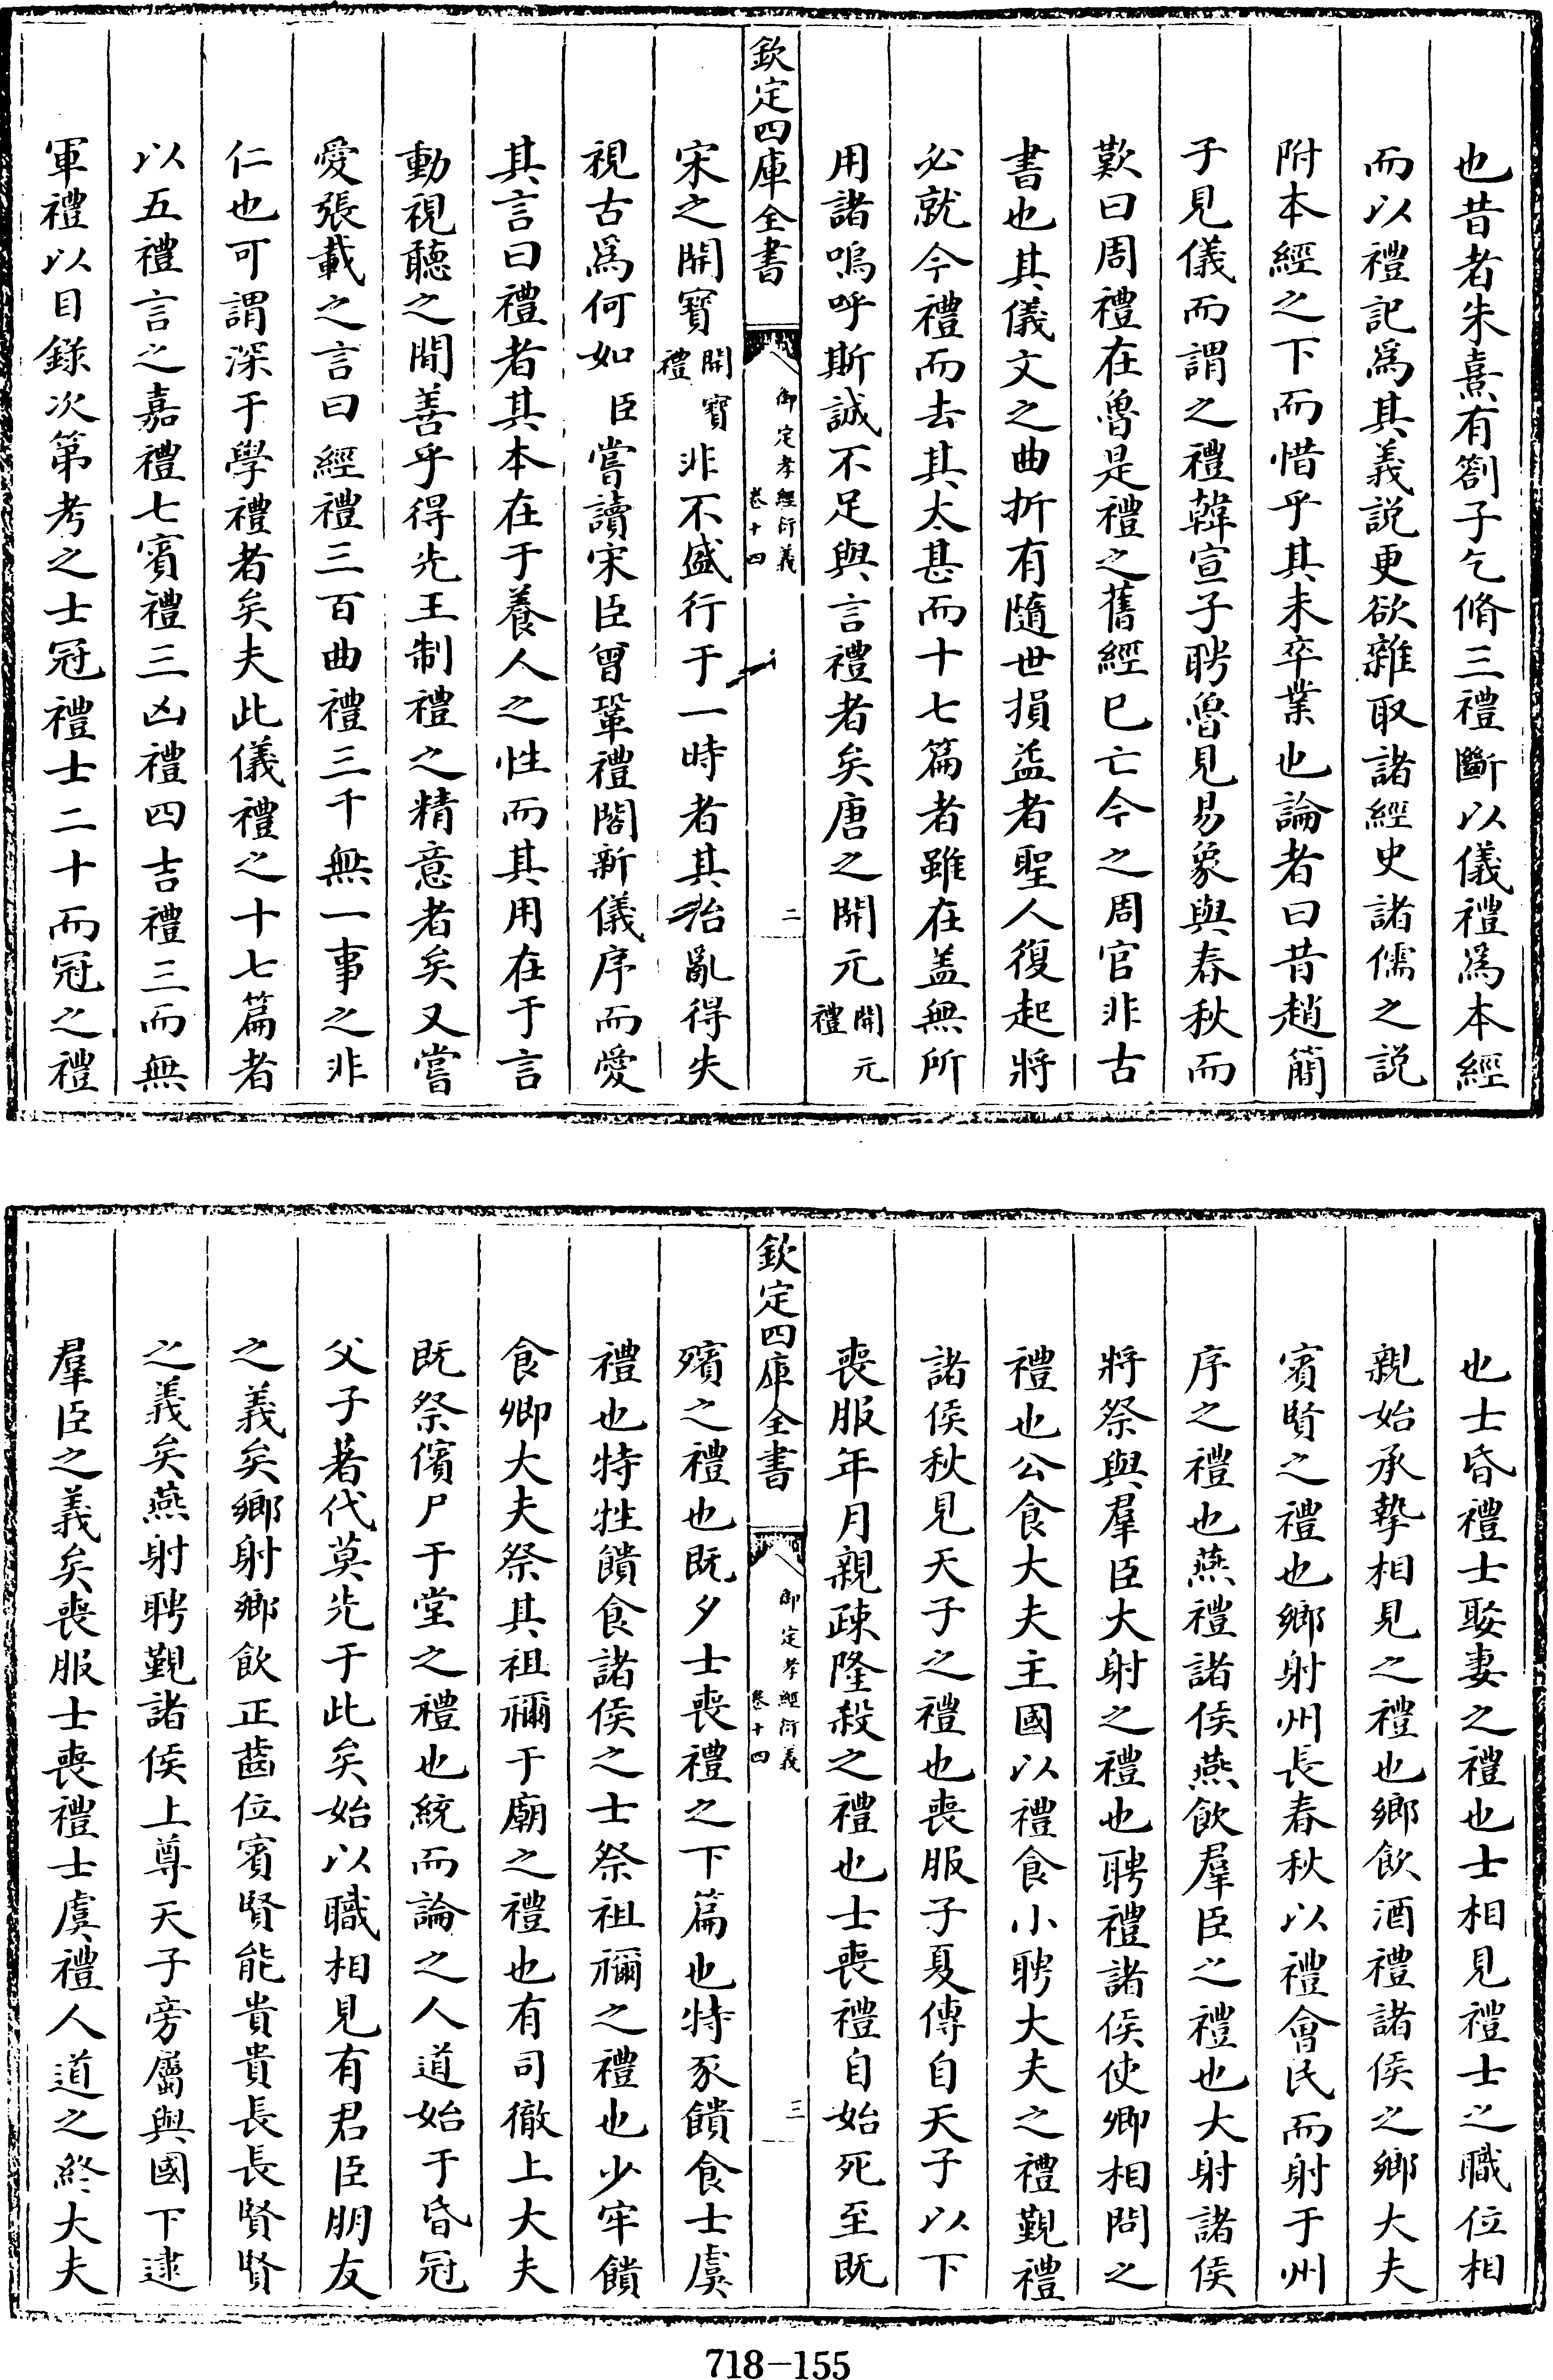 也昔者朱熹有劄子乞脩三禮斷以儀禮爲本經
而以禮記爲其義説更欲雜取諸經史諸儒之説
附本經之下而惜乎其未卒業也論者曰昔趙簡
子見儀而謂之禮韓宣子聘魯見易象與春秋而
歎曰周禮在魯是禮之舊經已亡今之周官非古
書也其儀文之曲折有隨世損益者聖人復起將
必就今禮而去其太甚而十七篇者雖在盖無所
用諸嗚呼斯誠不足與言禮者矣唐之開元開元禮
欽定四庫全書
御定孝經衍義
卷十四
二
宋之開寶開寶禮非不盛行于一時者其治亂得失
視古爲何如臣嘗讀宋臣曾鞏禮閣新儀序而愛
其言曰禮者其本在于養人之性而其用在于言
動視聽之間善乎得先王制禮之精意者矣又嘗
愛張載之言曰經禮三百曲禮三千無一事之非
仁也可謂深于學禮者矣夫此儀禮之十七篇者
以五禮言之嘉禮七賓禮三凶禮四吉禮三而無
軍禮以目錄次第考之士冠禮士二十而冠之禮
也士昏禮士娶妻之禮也士相見禮士之職位相
親始承摯相見之禮也鄉飲酒禮諸侯之鄉大夫
賓賢之禮也鄉射州長春秋以禮會民而射于州
序之禮也燕禮諸侯燕飲羣臣之禮也大射諸侯
將祭與羣臣大射之禮也聘禮諸侯使卿相問之
禮也公食大夫主國以禮食小聘大夫之禮覲禮
諸侯秋見天子之禮也喪服子夏傳自天子以下
喪服年月親疎隆殺之禮也士喪禮自始死至既
欽定四庫全書
御定孝經衍義
卷十四
三
殯之禮也既夕士喪禮之下篇也特豕饋食士虞
禮也特牲饋食諸侯之士祭祖禰之禮也少牢饋
食卿大夫祭其祖禰于廟之禮也有司徹上大夫
既祭儐尸于堂之禮也統而論之人道始于昏冠
父子著代莫先于此矣始以職相見有君臣朋友
之義矣鄉射鄉飲正齒位賓賢能貴貴長長賢賢
之義矣燕射聘覲諸侯上尊天子旁屬與國下逮
羣臣之義矣喪服士喪禮士虞禮人道之終大夫
718-155